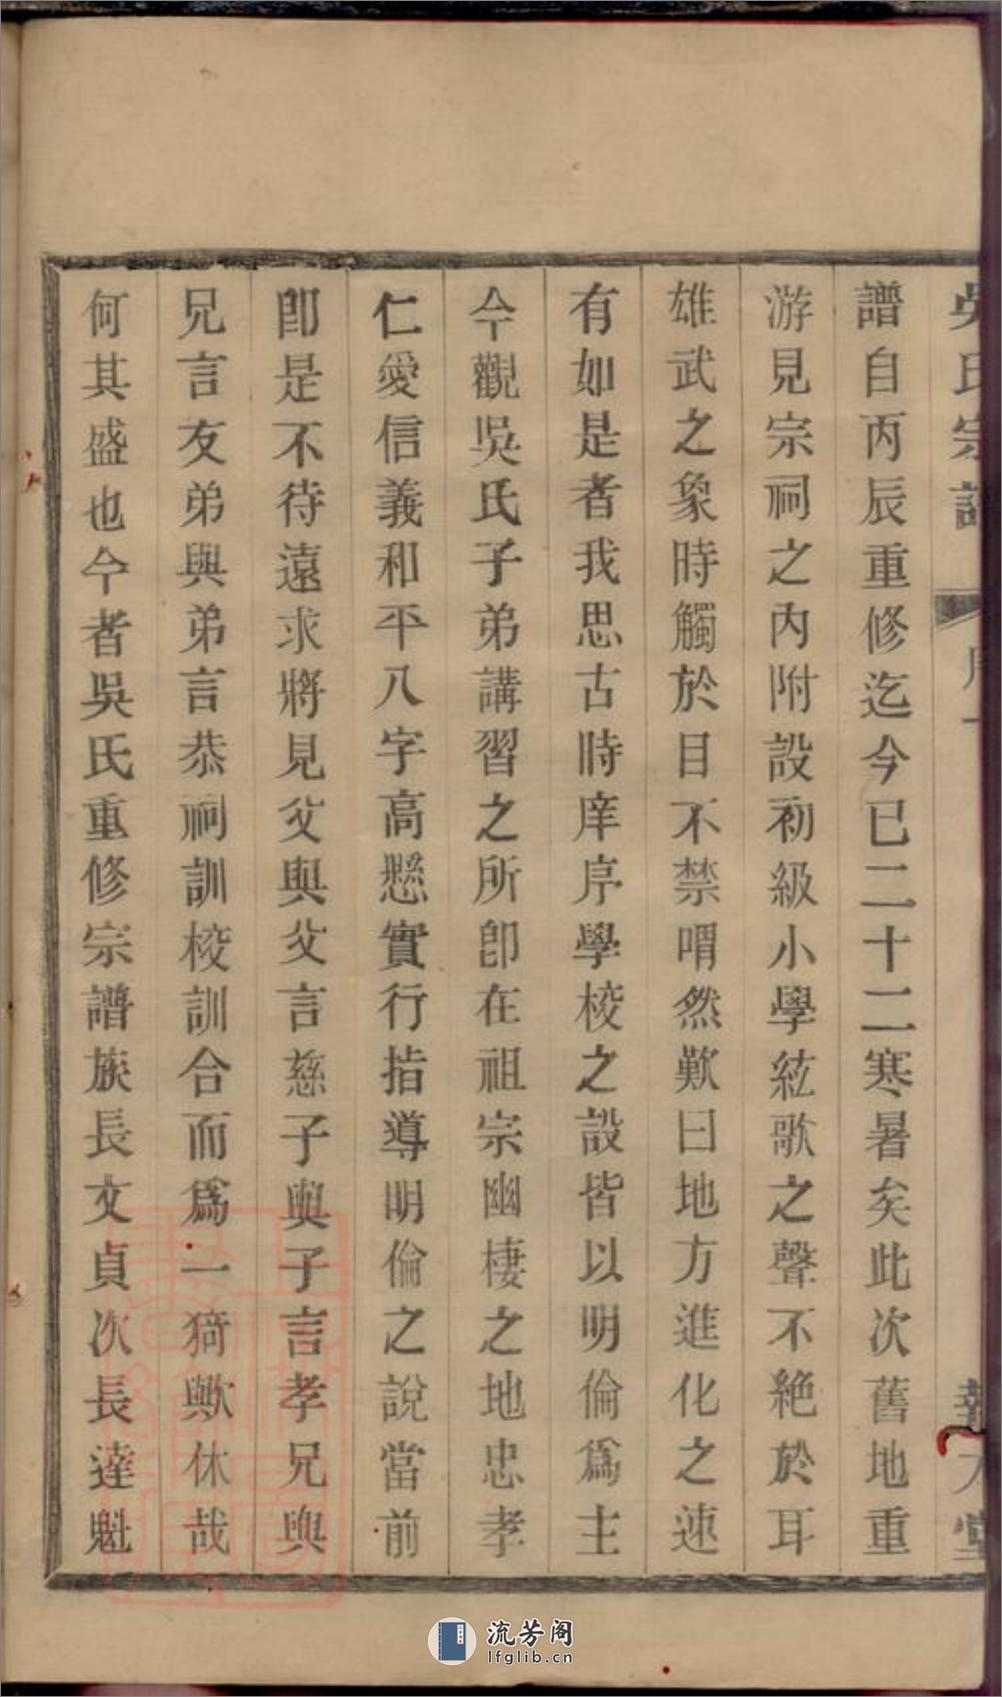 吳氏宗譜
譜自丙辰重修迄今已二十二寒暑矣此次舊地重
游見宗祠之內附設初級小學絃歌之聲不絕於耳
雄武之象時觸於目不禁喟然歎曰地方進化之速
有如是者我思古時庠序學校之設皆以明倫爲主
今觀吳氏子弟講習之所卽在祖宗幽棲之地忠孝
仁愛信義和平八字高懸實行指導明倫之說當前
卽是不待遠求將見父與父言慈子與子言孝兄與
兄言友弟與弟言恭祠訓校訓合而爲一猗歟休哉
何其盛也今者吳氏重修宗譜族長文貞次長達魁
流芳阁
lfglib.cn